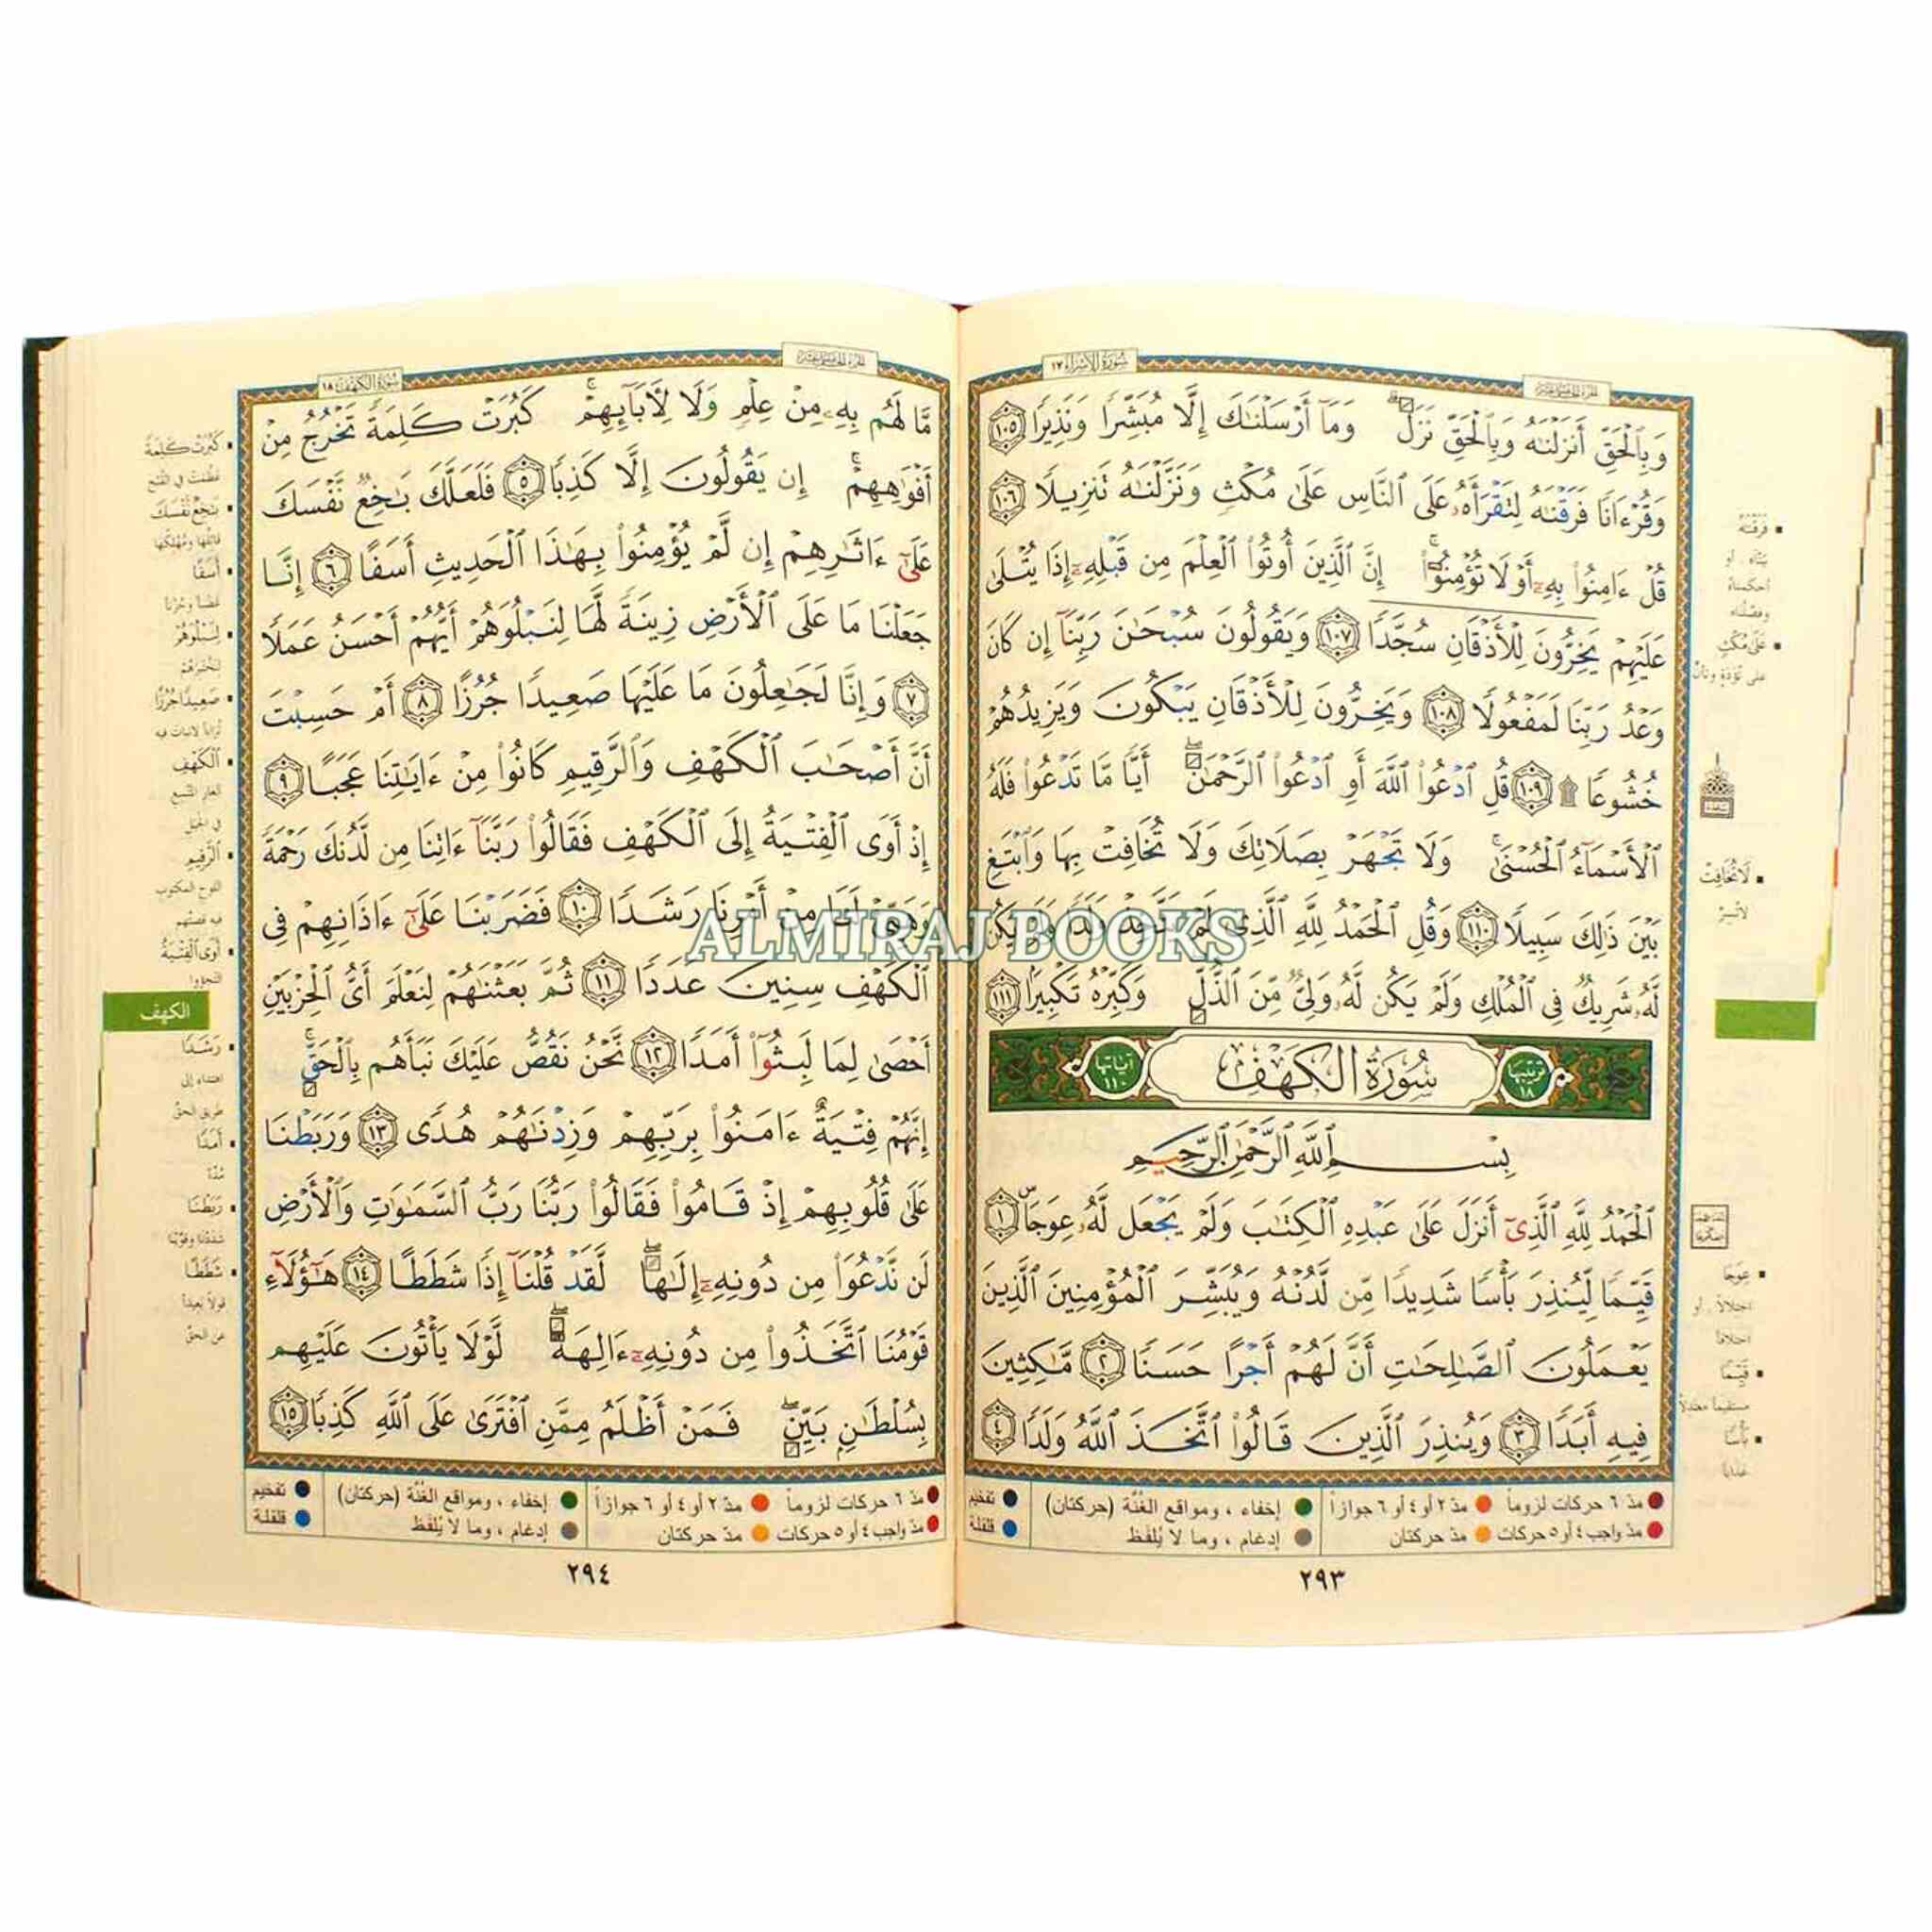 سُورَةُ الإِسْرَاء ١٧
وَبِٱلْحَقِّ أَنزَلْنَٰهُ وَبِٱلْحَقِّ نَزَلَ ۗ وَمَآ أَرْسَلْنَٰكَ إِلَّا مُبَشِّرًا وَنَذِيرًا ١٠٥
وَقُرْءَانًا فَرَقْنَٰهُ لِتَقْرَأَهُۥ عَلَى ٱلنَّاسِ عَلَىٰ مُكْثٍ وَنَزَّلْنَٰهُ تَنزِيلًا ١٠٦
قُلْ ءَامِنُوا۟ بِهِۦٓ أَوْ لَا تُؤْمِنُوٓا۟ ۚ إِنَّ ٱلَّذِينَ أُوتُوا۟ ٱلْعِلْمَ مِن قَبْلِهِۦٓ إِذَا يُتْلَىٰ
عَلَيْهِمْ يَخِرُّونَ لِلْأَذْقَانِ سُجَّدًا ١٠٧ وَيَقُولُونَ سُبْحَٰنَ رَبِّنَآ إِن كَانَ
وَعْدُ رَبِّنَا لَمَفْعُولًا ١٠٨ وَيَخِرُّونَ لِلْأَذْقَانِ يَبْكُونَ وَيَزِيدُهُمْ
خُشُوعًا ۩ ١٠٩ قُلِ ٱدْعُوا۟ ٱللَّهَ أَوِ ٱدْعُوا۟ ٱلرَّحْمَٰنَ ۖ أَيًّا مَّا تَدْعُوا۟ فَلَهُ
ٱلْأَسْمَآءُ ٱلْحُسْنَىٰ ۚ وَلَا تَجْهَرْ بِصَلَاتِكَ وَلَا تُخَافِتْ بِهَا وَٱبْتَغِ
بَيْنَ ذَٰلِكَ سَبِيلًا ١١٠ وَقُلِ ٱلْحَمْدُ لِلَّهِ ٱلَّذِى لَمْ يَتَّخِذْ وَلَدًا وَلَمْ يَكُن
لَّهُۥ شَرِيكٌ فِى ٱلْمُلْكِ وَلَمْ يَكُن لَّهُۥ وَلِىٌّ مِّنَ ٱلذُّلِّ ۖ وَكَبِّرْهُ تَكْبِيرًۢا ١١١
ترتيبها ١٨ سُورَةُ الكَهْفِ آياتها ١١٠
بِسْمِ ٱللَّهِ ٱلرَّحْمَٰنِ ٱلرَّحِيمِ
ٱلْحَمْدُ لِلَّهِ ٱلَّذِىٓ أَنزَلَ عَلَىٰ عَبْدِهِ ٱلْكِتَٰبَ وَلَمْ يَجْعَل لَّهُۥ عِوَجَاۜ ١
قَيِّمًا لِّيُنذِرَ بَأْسًا شَدِيدًا مِّن لَّدُنْهُ وَيُبَشِّرَ ٱلْمُؤْمِنِينَ ٱلَّذِينَ
يَعْمَلُونَ ٱلصَّٰلِحَٰتِ أَنَّ لَهُمْ أَجْرًا حَسَنًا ٢ مَّٰكِثِينَ
فِيهِ أَبَدًا ٣ وَيُنذِرَ ٱلَّذِينَ قَالُوا۟ ٱتَّخَذَ ٱللَّهُ وَلَدًا ٤
فَرَقْنَٰهُ
عَلَىٰ مُكْثٍ
لَا تُخَافِتْ
عِوَجًا
قَيِّمًا
بَأْسًا
مدّ ٦ حركات لزوماً مدّ ٢ أو ٤ أو ٦ جوازاً إخفاء ، ومواقع الغُنَّة (حركتان) تفخيم
مدّ واجب ٤ أو ٥ حركات مدّ حركتان إدغام ، وما لا يُلفَظ قلقلة
٢٩٣
سُورَةُ الكَهْفِ ١٨
مَّا لَهُم بِهِۦ مِنْ عِلْمٍ وَلَا لِءَابَآئِهِمْ ۚ كَبُرَتْ كَلِمَةً تَخْرُجُ مِنْ
أَفْوَٰهِهِمْ ۚ إِن يَقُولُونَ إِلَّا كَذِبًا ٥ فَلَعَلَّكَ بَٰخِعٌ نَّفْسَكَ
عَلَىٰٓ ءَاثَٰرِهِمْ إِن لَّمْ يُؤْمِنُوا۟ بِهَٰذَا ٱلْحَدِيثِ أَسَفًا ٦ إِنَّا
جَعَلْنَا مَا عَلَى ٱلْأَرْضِ زِينَةً لَّهَا لِنَبْلُوَهُمْ أَيُّهُمْ أَحْسَنُ عَمَلًا
٧ وَإِنَّا لَجَٰعِلُونَ مَا عَلَيْهَا صَعِيدًا جُرُزًا ٨ أَمْ حَسِبْتَ
أَنَّ أَصْحَٰبَ ٱلْكَهْفِ وَٱلرَّقِيمِ كَانُوا۟ مِنْ ءَايَٰتِنَا عَجَبًا ٩
إِذْ أَوَى ٱلْفِتْيَةُ إِلَى ٱلْكَهْفِ فَقَالُوا۟ رَبَّنَآ ءَاتِنَا مِن لَّدُنكَ رَحْمَةً
وَهَيِّئْ لَنَا مِنْ أَمْرِنَا رَشَدًا ١٠ فَضَرَبْنَا عَلَىٰٓ ءَاذَانِهِمْ فِى
ٱلْكَهْفِ سِنِينَ عَدَدًا ١١ ثُمَّ بَعَثْنَٰهُمْ لِنَعْلَمَ أَىُّ ٱلْحِزْبَيْنِ
أَحْصَىٰ لِمَا لَبِثُوٓا۟ أَمَدًا ١٢ نَّحْنُ نَقُصُّ عَلَيْكَ نَبَأَهُم بِٱلْحَقِّ ۚ
إِنَّهُمْ فِتْيَةٌ ءَامَنُوا۟ بِرَبِّهِمْ وَزِدْنَٰهُمْ هُدًى ١٣ وَرَبَطْنَا
عَلَىٰ قُلُوبِهِمْ إِذْ قَامُوا۟ فَقَالُوا۟ رَبُّنَا رَبُّ ٱلسَّمَٰوَٰتِ وَٱلْأَرْضِ
لَن نَّدْعُوَا۟ مِن دُونِهِۦٓ إِلَٰهًا ۖ لَّقَدْ قُلْنَآ إِذًا شَطَطًا ١٤ هَٰٓؤُلَآءِ
قَوْمُنَا ٱتَّخَذُوا۟ مِن دُونِهِۦٓ ءَالِهَةً ۖ لَّوْلَا يَأْتُونَ عَلَيْهِم
بِسُلْطَٰنٍۭ بَيِّنٍ ۖ فَمَنْ أَظْلَمُ مِمَّنِ ٱفْتَرَىٰ عَلَى ٱللَّهِ كَذِبًا ١٥
كَبُرَتْ كَلِمَةً
بَٰخِعٌ نَّفْسَكَ
أَسَفًا
لِنَبْلُوَهُمْ
صَعِيدًا جُرُزًا
ٱلْكَهْفِ
ٱلرَّقِيمِ
أَوَى ٱلْفِتْيَةُ
الكهف
رَشَدًا
أَمَدًا
رَبَطْنَا
شَطَطًا
مدّ ٦ حركات لزوماً مدّ ٢ أو ٤ أو ٦ جوازاً إخفاء ، ومواقع الغُنَّة (حركتان) تفخيم
مدّ واجب ٤ أو ٥ حركات مدّ حركتان إدغام ، وما لا يُلفَظ قلقلة
٢٩٤
ALMIRAJ BOOKS